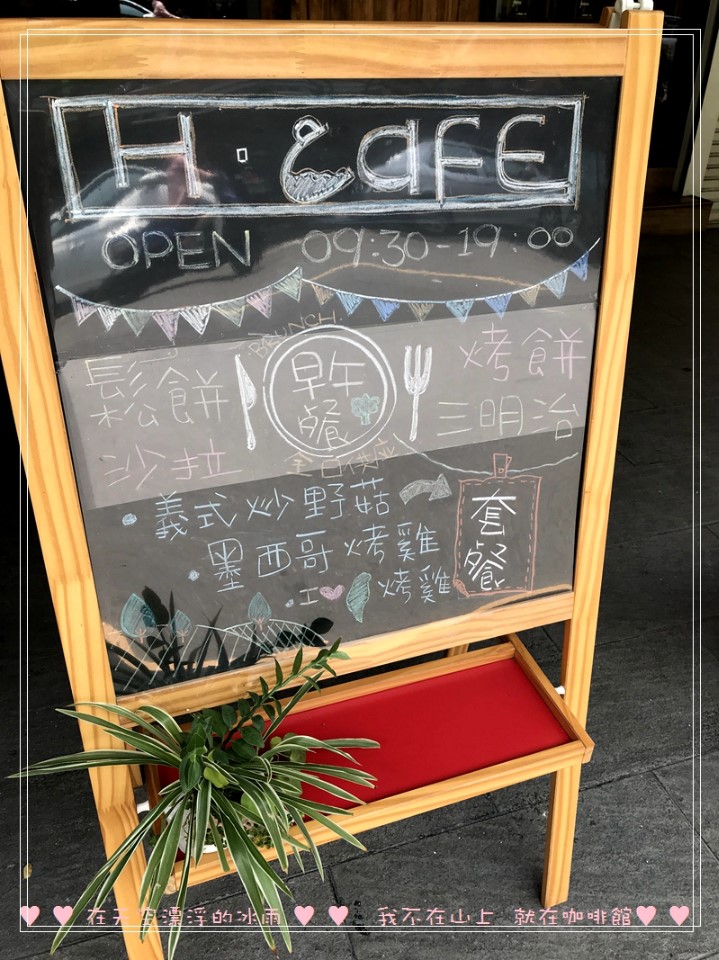 H · CAFE
OPEN 09:30-19:00
BRUNCH
鬆餅 早午餐 烤餅
沙拉 三明治
全日供應
• 義式炒野菇
• 墨西哥烤雞
• I ♥ 烤雞
套餐
♥ ♥ 在天空漂浮的冰雨 ♥ ♥ 我不在山上 就在咖啡館 ♥ ♥